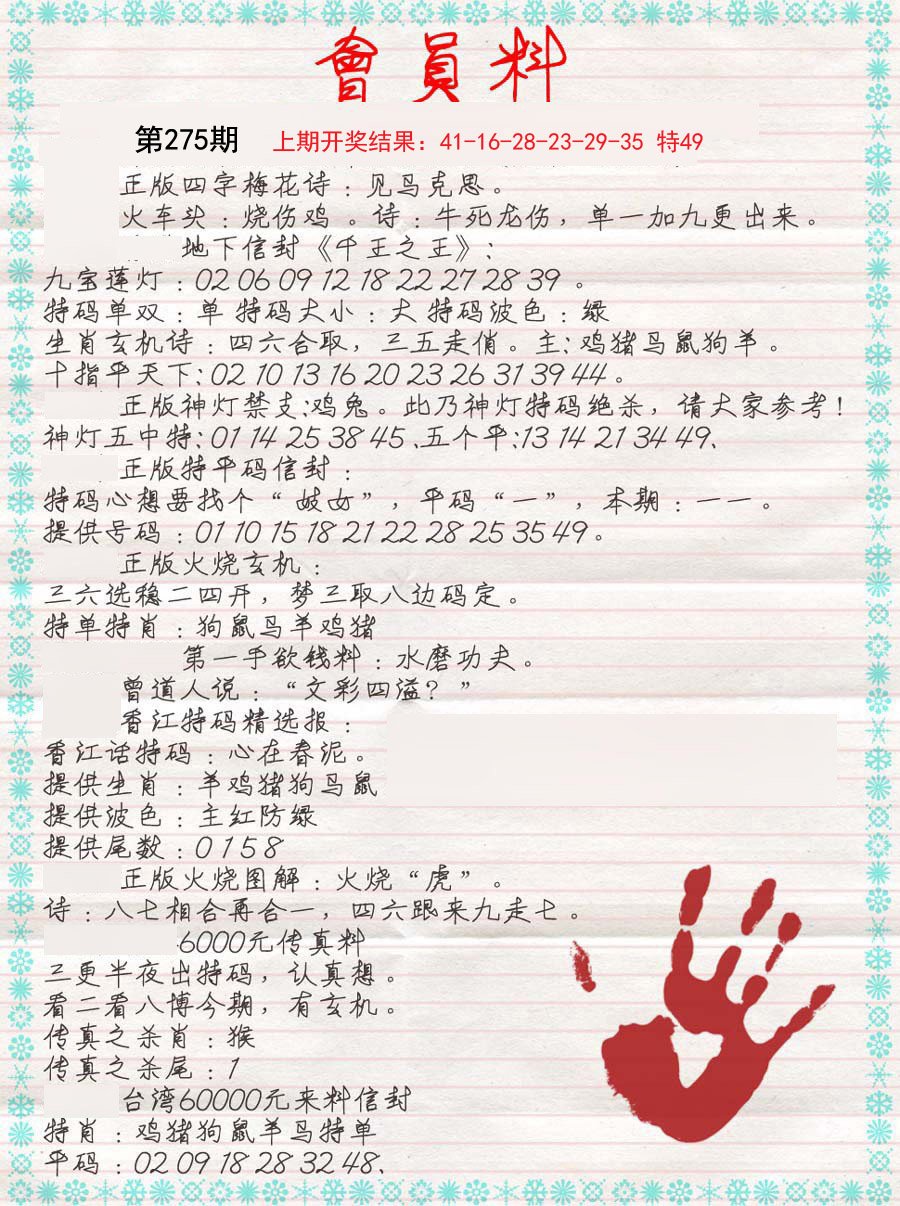 會員料
第275期 上期开奖结果：41-16-28-23-29-35 特49
正版四字梅花诗：见鸟克思。
火车头：烧伤鸡。诗：牛死龙伤，单一加九更出来。
地下信封《千王之王》：
九宝莲灯：02 06 09 12 18 22 27 28 39 。
特码单双：单 特码大小：大 特码波色：绿
生肖玄机诗：四六合取，三五走俏。主：鸡猪马鼠狗羊。
十指平天下：02 10 13 16 20 23 26 31 39 44 。
正版神灯禁支：鸡兔。此乃神灯特码绝杀，请大家参考！
神灯五中特：01 14 25 38 45 、五个平：13 14 21 34 49、
正版特平码信封：
特码心想要找个“ 妓女”，平码“一”，本期：一一。
提供号码：01 10 15 18 21 22 28 25 35 49 。
正版火烧玄机：
三六选稳二四开，梦三取八边码定。
特单特肖：狗鼠马羊鸡猪
第一手欲钱料：水磨功夫。
曾道人说：“文彩四溢？”
香江特码精选报：
香江话特码：心在春泥。
提供生肖：羊鸡猪狗马鼠
提供波色：主红防绿
提供尾数：0 1 5 8
正版火烧图解：火烧“虎”。
诗：八七相合再合一，四六跟来九走七。
6000元传真料
三更半夜出特码，认真想。
看二看八博今期，有玄机。
传真之杀肖：猴
传真之杀尾：1
台湾60000元来料信封
特肖：鸡猪狗鼠羊马特单
平码：02 09 18 28 32 48、